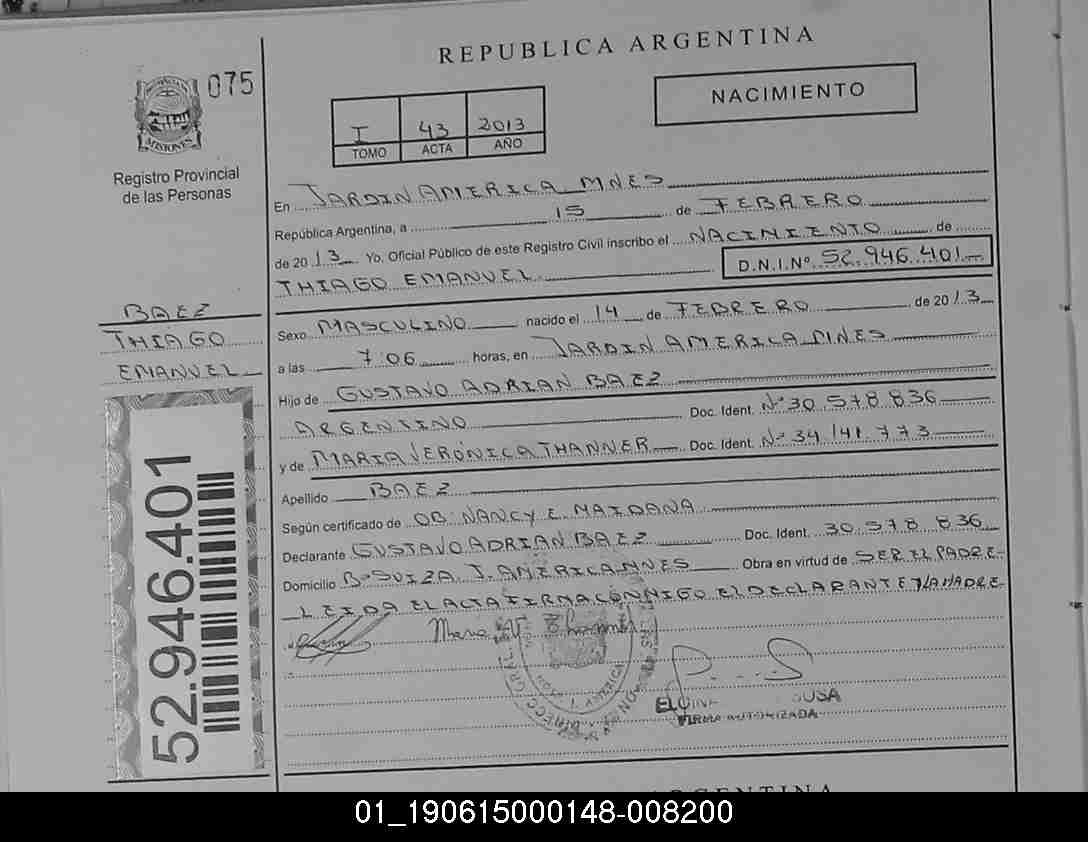 REPUBLICA ARGENTINA
075
NACIMIENTO
I 43 2013
TOMO ACTA AÑO
MISIONES
Registro Provincial
de las Personas
En JARDIN AMERICA MNES
República Argentina, a 15 de FEBRERO de
de 2013 Yo. Oficial Público de este Registro Civil inscribo el NACIMIENTO
THIAGO EMANUEL D.N.I.Nº 52.946.401
BAEZ
THIAGO
EMANUEL
Sexo MASCULINO nacido el 14 de FEBRERO de 2013
a las 7:06 horas, en JARDIN AMERICA MNES
Hijo de GUSTAVO ADRIAN BAEZ
ARGENTINO Doc. Ident. Nº 30.578.836
y de MARIA VERÓNICA THANNER Doc. Ident. Nº 34.141.773
Apellido BAEZ
Según certificado de OB. NANCY E. MAIDANA
Declarante GUSTAVO ADRIAN BAEZ Doc. Ident. 30.578.836
Domicilio Bº SUIZA. J. AMERICA MNES Obra en virtud de SER EL PADRE
LEIDA EL ACTA FIRMA CONMIGO EL DECLARANTE Y LA MADRE
52.946.401
Maria V.
J. AMERICA
SOUSA
FIRMA AUTORIZADA
ARGENTINA
01_190615000148-008200